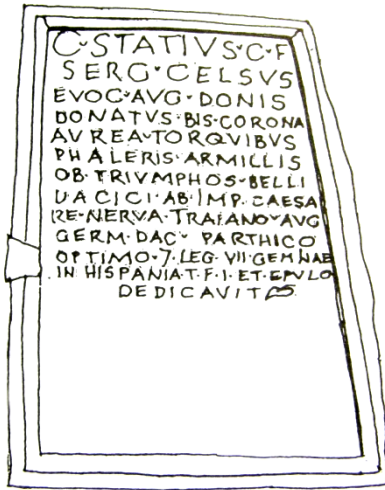 C·STATIVS·C·F
SERG·CELSVS
EVOC·AVG·DONIS
DONATVS·BIS·CORONA
AVREA·TORQVIBVS
PHALERIS·ARMILLIS
OB·TRIVMPHOS·BELLI
DACICI·AB·IMP·CAESA
RE·NERVA·TRAIANO·AVG
GERM·DAC· PARTHICO
OPTIMO·7·LEG·VII·GEMINAE
IN HISPANIA·T·F·I·ET·EPVLO
DEDICAVIT